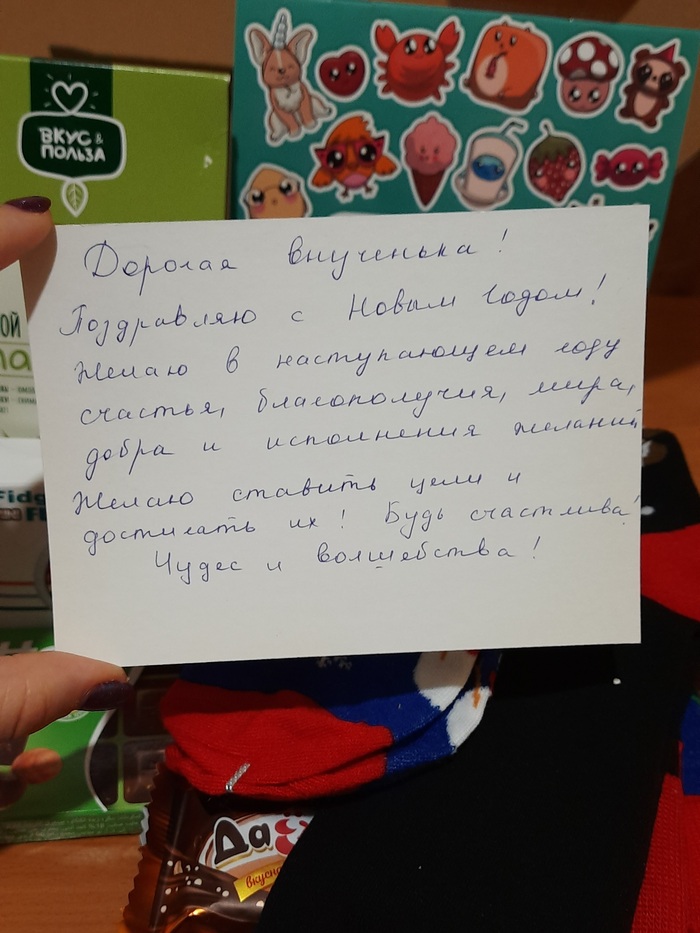 ВКУС &
ПОЛЬЗА
Дорогая внученька!
Поздравляю с Новым годом!
Желаю в наступающем году
счастья, благополучия, мира,
добра и исполнения желаний
Желаю ставить цели и
достигать их! Будь счастлива!
Чудес и волшебства!
ОЙ
Fidg
Да